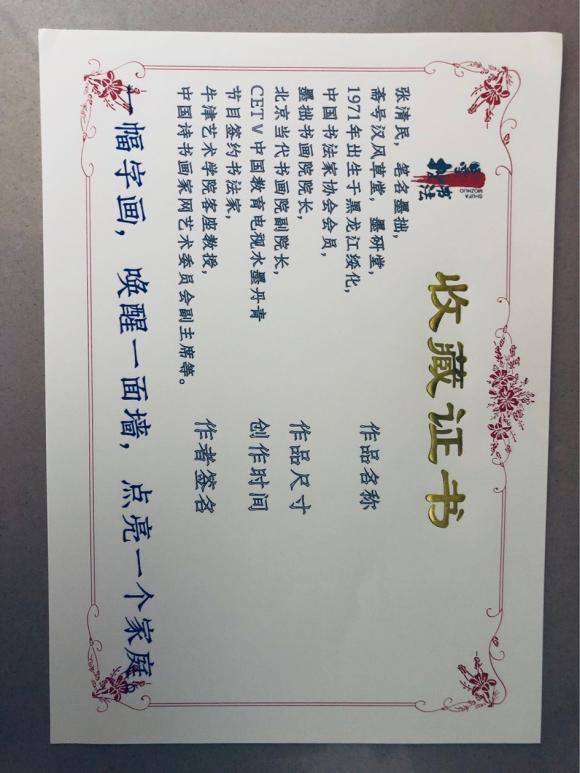 收藏证书
墨拙书法
SHUFA
MOZHUO
张清民，笔名墨拙，
斋号汉风草堂，墨研堂，
1971年出生于黑龙江绥化，
中国书法家协会会员，
墨拙书画院院长，
北京当代书画院副院长，
CETV中国教育电视水墨丹青
节目签约书法家，
牛津艺术学院客座教授，
中国诗书画家网艺术委员会副主席等。
作品名称
作品尺寸
创作时间
作者签名
一幅字画，唤醒一面墙，点亮一个家庭。